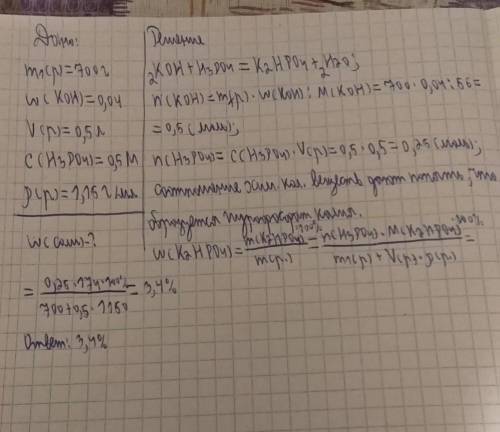 Дано:
m(p)=700г
w(KOH)=0,04
V(p)=0,5л
C(H3PO4)=0,5M
ρ(p)=1,15г/мл
w(соли)-?
Решение
2KOH+H3PO4=K2HPO4+2H2O;
n(KOH)=m(p)·w(KOH):M(KOH)=700·0,04:56=
=0,5(моль);
n(H3PO4)=C(H3PO4)·V(p)=0,5·0,5=0,25(моль);
соотношение хим. кол. веществ дают понять, что
образуется гидрофосфат калия.
w(K2HPO4)=m(K2HPO4)·100%/m(p)=n(H3PO4)·M(K2HPO4)·100%/m(p)+V(p)·ρ(p)=
=0,25·174·100%/700+0,5·1150=3,4%
Ответ: 3,4%